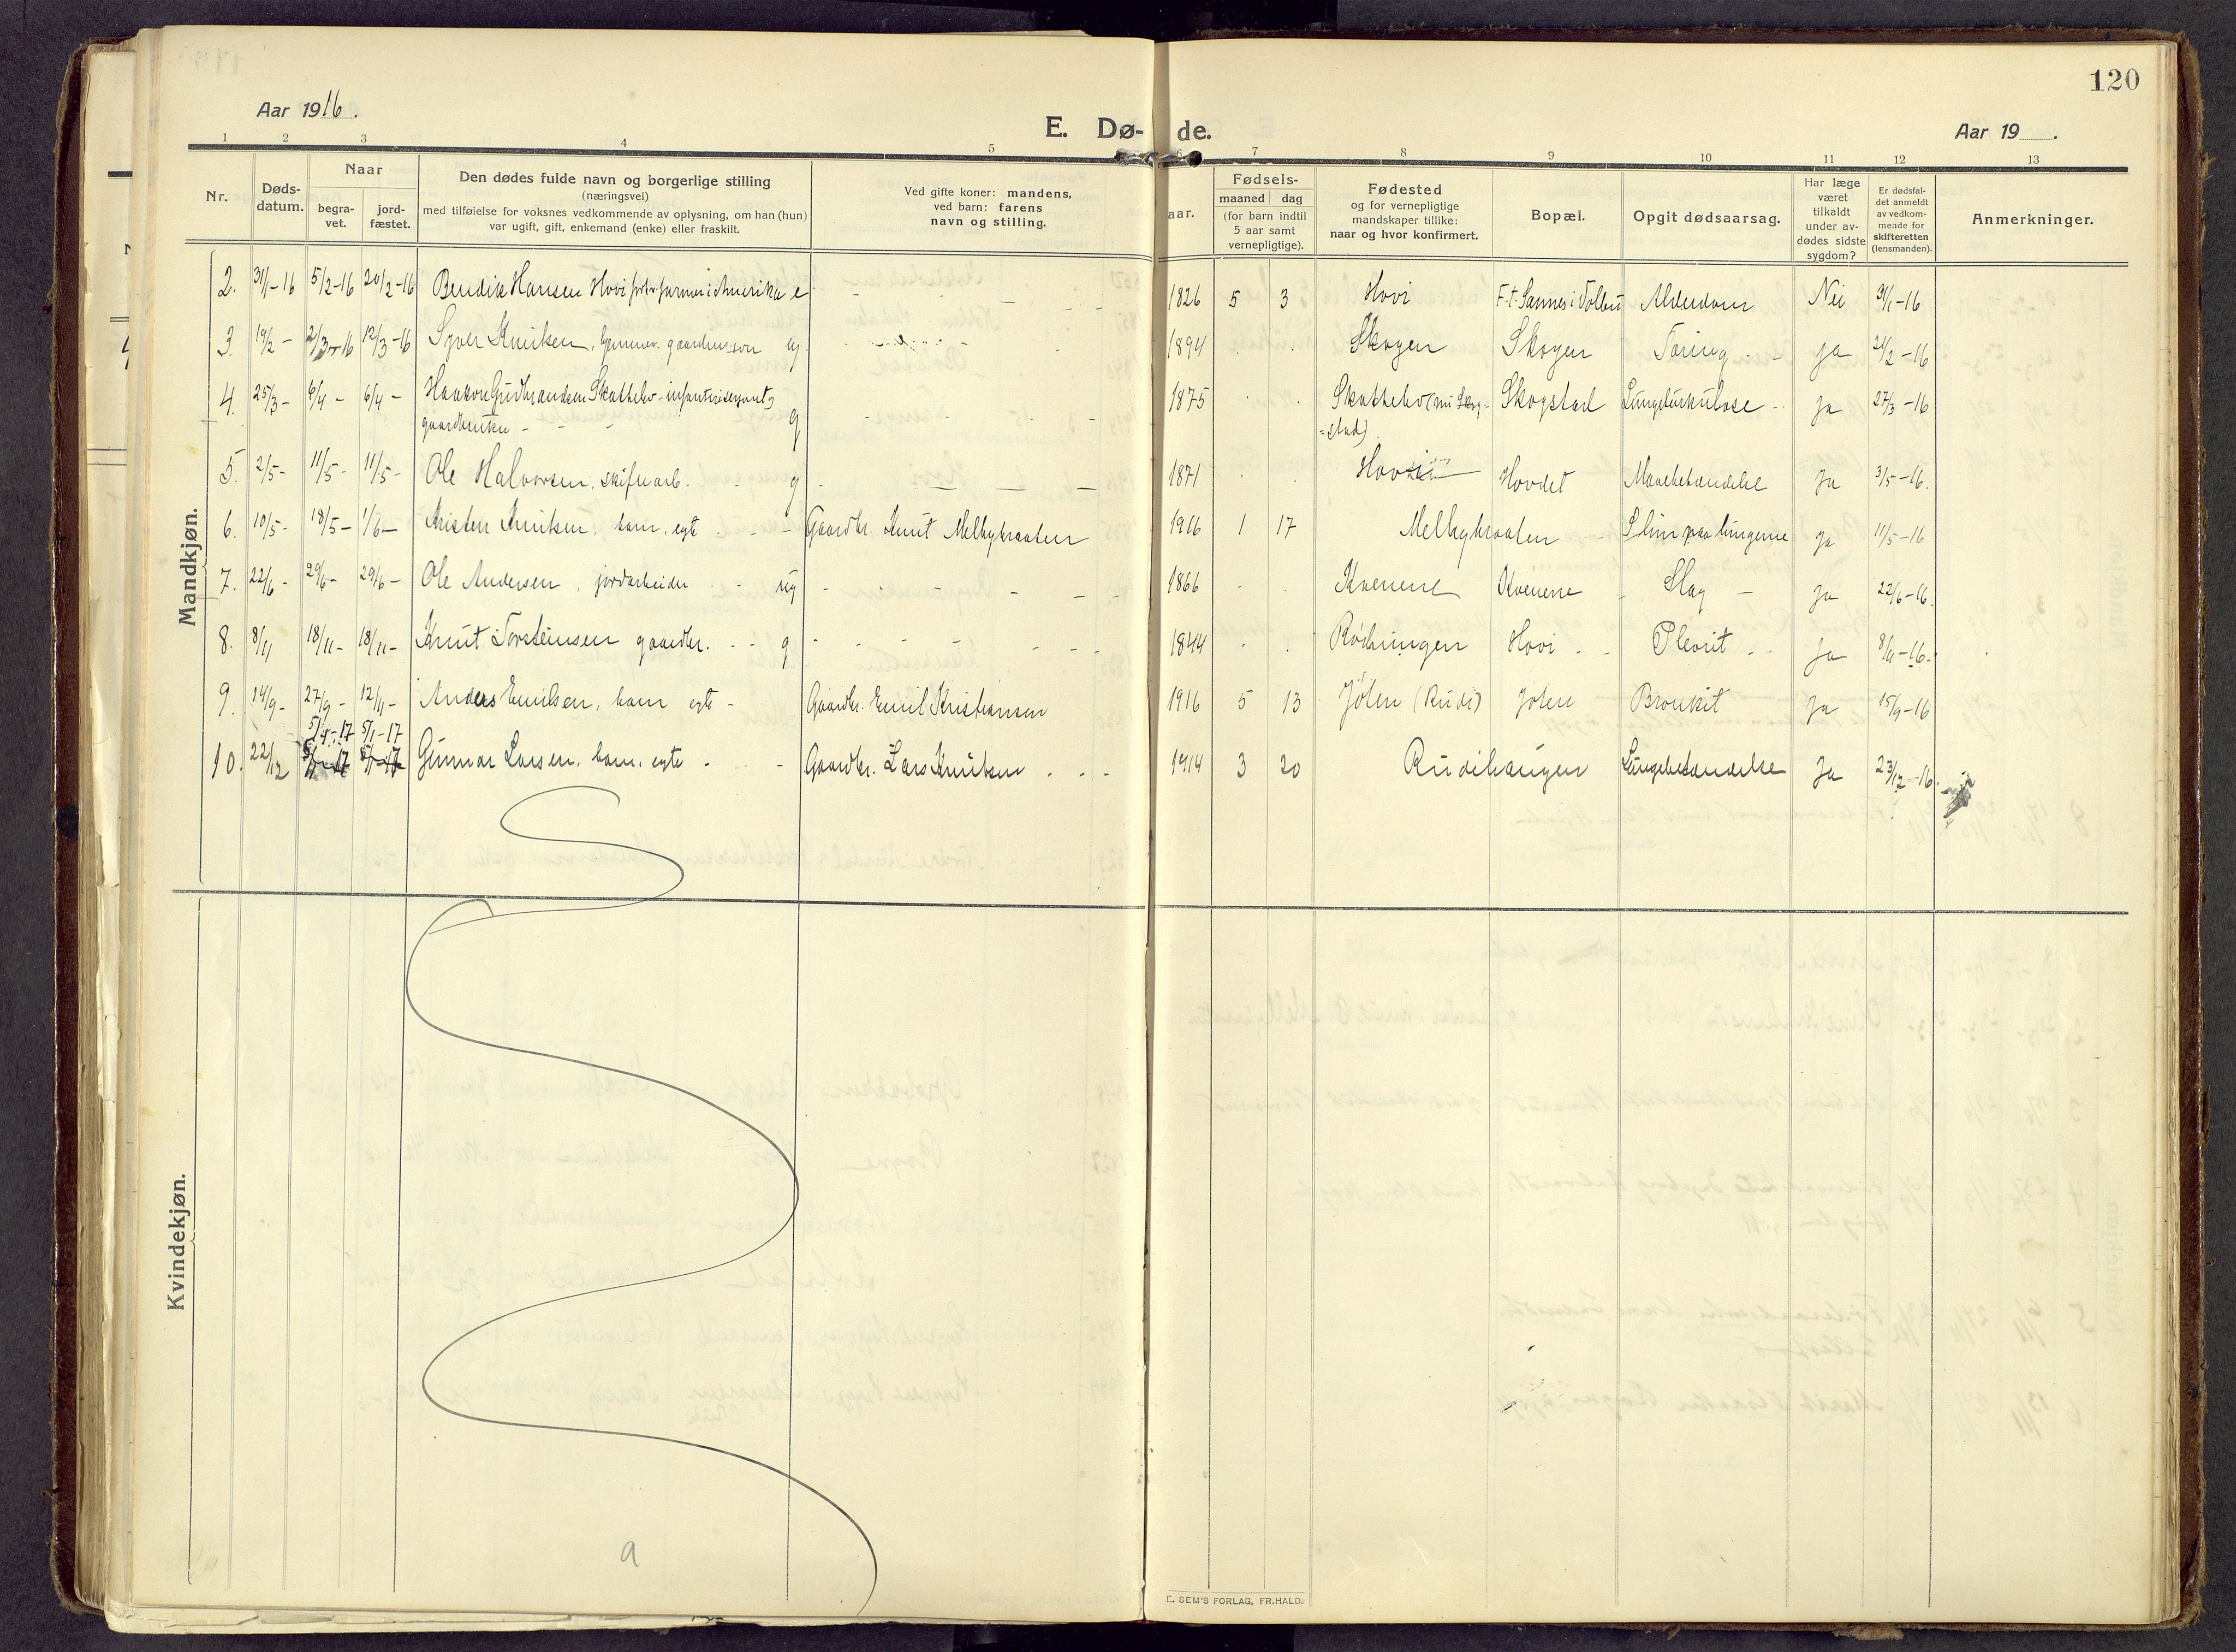 120
Aar 1916.
E. Dø-
de.
Aar 19 .
1 2 3 4 5 6 7 8 9 10 11 12 13
Nr.
Døds-
datum.
Naar
begra-
vet.
jord-
fæstet.
Den dødes fulde navn og borgerlige stilling
(næringsvei)
med tilføielse for voksnes vedkommende av oplysning, om han (hun)
var ugift, gift, enkemand (enke) eller fraskilt.
Ved gifte koner: mandens,
ved barn: farens
navn og stilling.
aar.
Fødsels-
maaned dag
(for barn indtil
5 aar samt
vernepligtige).
Fødested
og for vernepligtige
mandskaper tillike:
naar og hvor konfirmert.
Bopæl.
Opgit dødsaarsag.
Har læge
været
tilkaldt
under av-
dødes sidste
sygdom?
Er dødsfal-
det anmeldt
av vedkom-
mende for
skifteretten
(lensmanden).
Anmerkninger.
Mandkjøn.
2. 31/1-16 5/2-16 20/2-16 Bendik Hansen Hovi farmer i Amerika e 1826 5 3 Hovi Alderdom Nei 31/1-16
3. 19/2 - 12/3-16 Syver Knutsen, ug 1894 Skogen Skogen Tæring - ja 24/2-16
4. 25/3- 6/4 - 6/4 - Haakon Gudbrandsen Skattebo - infanterisergeant,
gaardbruker - g 1875 Skattebo (nu Skog-
-stad) Skogstad Lungetuberkulose - ja 27/3-16
5. 2/5- 11/5- 11/5- Ole Halvorsen, skifrearb. g 1871 Hovdet Mavebetændelse Ja 3/5-16.
6. 10/5- 18/5- 1/6- Kristen Knutsen, barn, egte - Gaardbr. Knut Melbybraaten 1916 1 17 Melbybraaten Slim paa lungerne Ja 11/5-16
7. 22/6- 29/6- 29/6- Ole Andersen, jordarbeider ug 1866 Kvenene Kvenene Slag - Ja 22/6-16.
8. 8/11 18/11- 18/11- Knut Torsteinsen gaardbr. g 1844 Rødningen Hovi Plevrit Ja 8/11-16.
9. 14/9- 27/9- 12/11- Anders Emilsen, barn egte - Gaardbr. Emil Kristiansen 1916 5 13 Jølen (Rudi) Jølen Bronkit Ja 15/9-16
5/1-17 5/1-17
10. 22/12 Gunnar Larsen, barn, egte - Gaardbr. Lars Knutsen 1914 3 20 Rudihaugen Lungebetændelse Ja 23/12-16.
Kvindekjøn.
a
E. SEM'S FORLAG, FR.HALD.